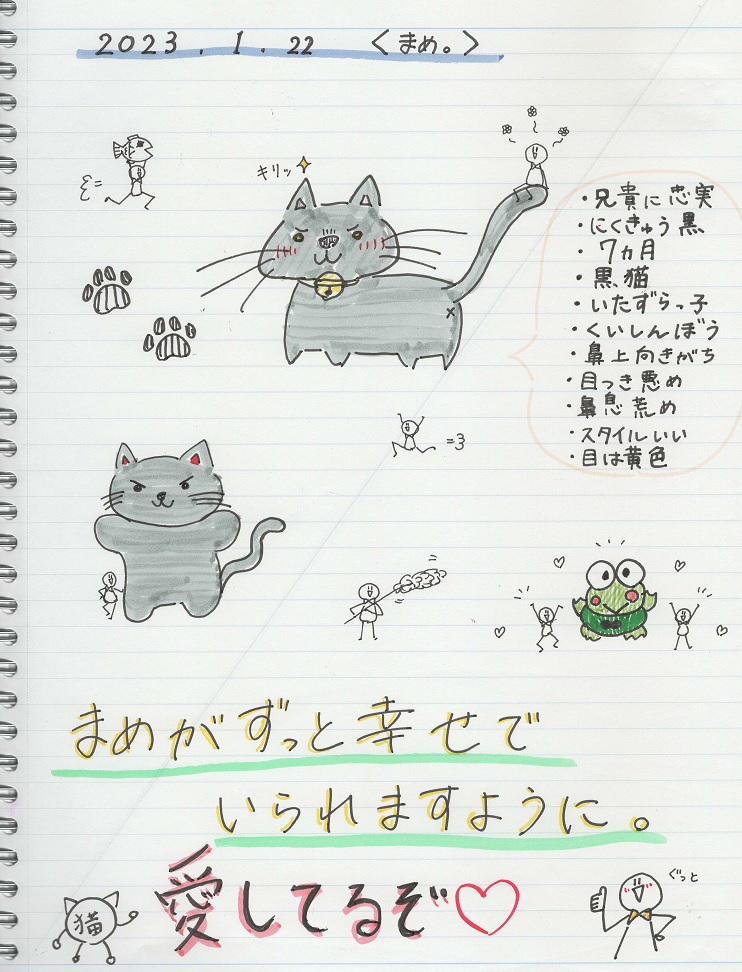 2023.1.22 〈まめ。〉
キリッ
・兄貴に忠実
・にくきゅう黒
・7ヵ月
・黒猫
・いたずらっ子
・くいしんぼう
・鼻上向きがち
・目つき悪め
・鼻息荒め
・スタイルいい
・目は黄色
まめがずっと幸せで
いられますように。
愛してるぞ♡
猫
ぐっと